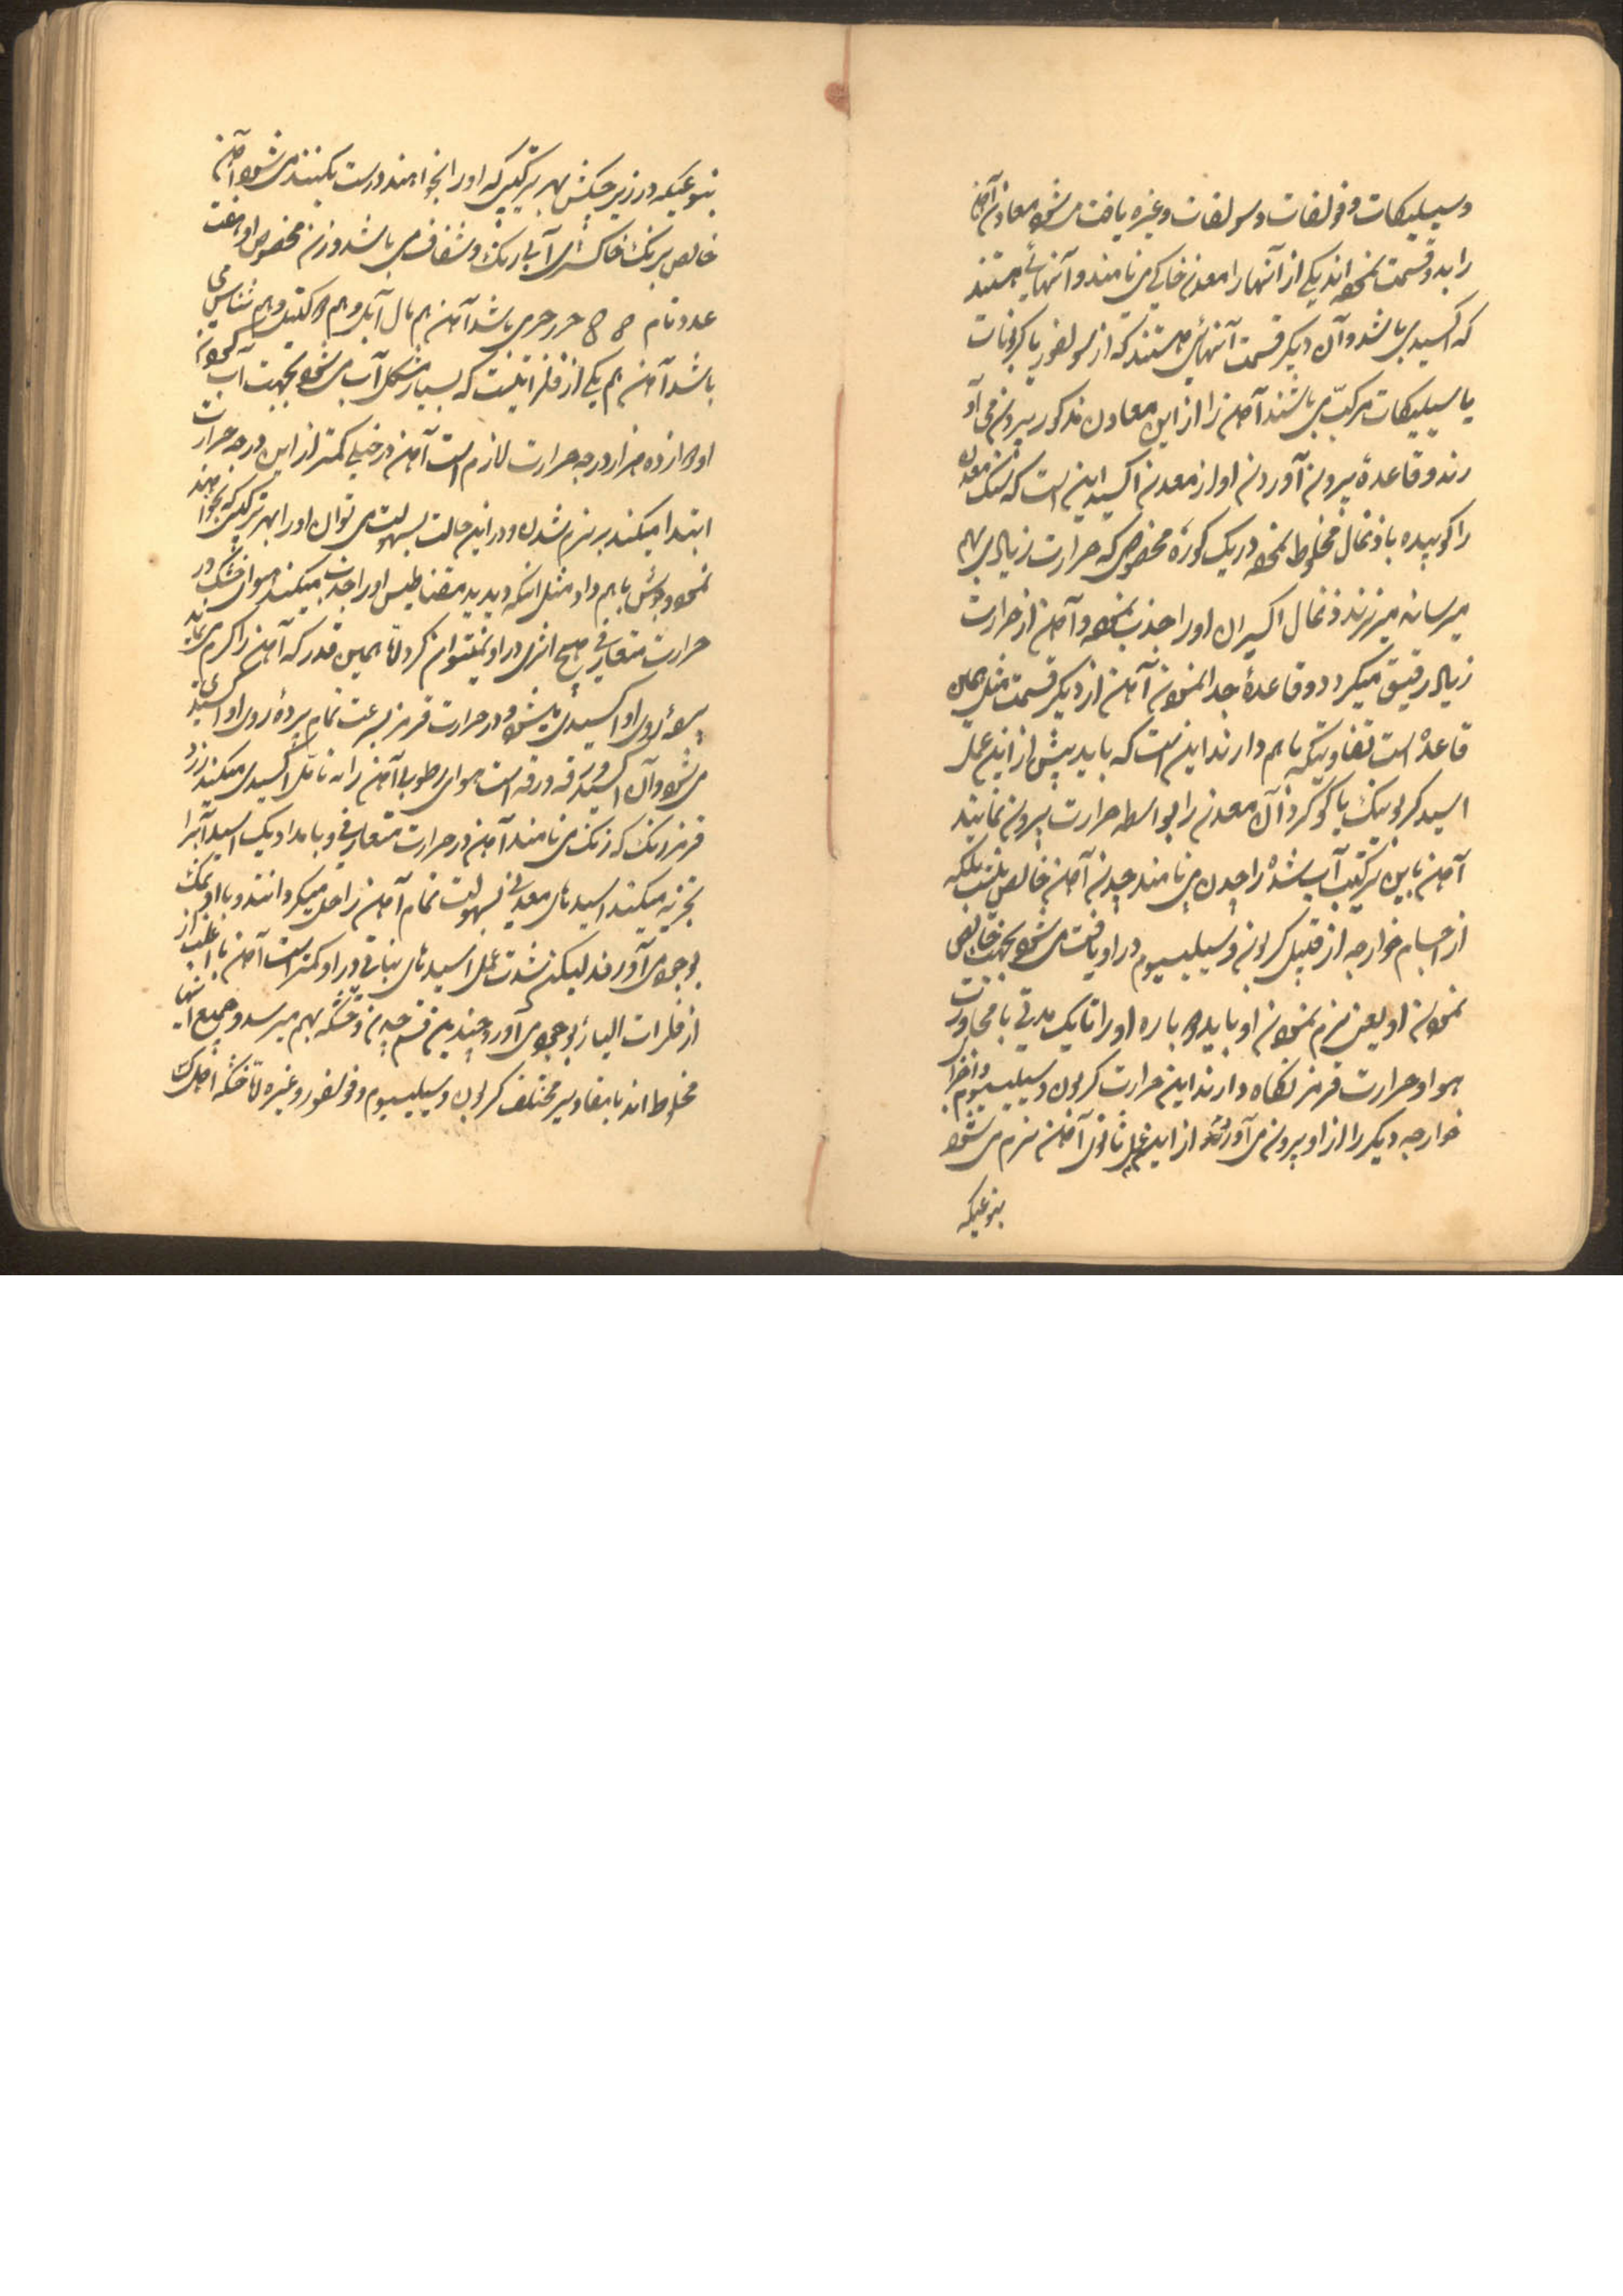 و سیلیکات و فولفات و سولفات و غیره یافت می شود معادن آهن
را به دو قسمت نموده اند یکی از آنها را معدن خاکی می نامند و آنهائی هستند
که اکسیدی باشد و آن دیگر قسمت آنهائی هستند که از سولفور یا کربونات
یا سیلیکات مرکب می باشند آهن را از این معادن مذکور بیرون می آو
رند و قاعدهٔ بیرون آوردن او از معدن اکسید این است که سنگ معدن
را کوبیده با ذغال مخلوط نموده در یک کورهٔ مخصوصی که حرارت زیادی بهم
میرساند میریزند ذغال اکسیژن او را جذب نموده و آهن از حرارت
زیاد رقیق میگردد و قاعدهٔ جدا نمودن آهن از دیگر قسمت مثل همان
قاعده است تفاوتیکه باهم دارند این است که باید پیش از این عمل
اسید کربونیک یا گوگرد آن معدن را بواسطه حرارت بیرون نمایند
آهن باین ترکیب آب شده را چدن می نامند چدن آهن خالص نیست بلکه
از اجسام خوارجه از قبیل کربون و سیلیسیوم در او یافت می شود بجهت خالص
نمودن او یعنی نرم نمودن او باید دوباره او را تا یک مدتی با مجاورت
هوا و حرارت قرمز نگاه دارند این حرارت کربون و سیلیسیوم و اجزاء
خوارجه دیگر را از او بیرون می آورد از این عمل ثانوی آهن نرم می شود
بنوعیکه
بنوعیکه در زیر چکش بهر ترکیبی که او را بخواهند درست بکنند می شود آهن
خالص برنگ خاکستری آبی رنگ و شفاف می باشد وزن مخصوص او هفت
عدد تمام ۸۸ می باشد آهن هم مال آبل و هم دوکتیل و هم تناسی می
باشد آهن هم یکی از فلزاتیست که بسیار مشکل آب می شود بجهت آب کردن
او دوازده هزار درجه حرارت لازم است آهن در خیلی کمتر از این درجه حرارت
ابتدا میکند بر نرم شدن و در این حالت بسهولت می توان او را بهر ترکیبی که بخواهند
نمود و جوش باهم داد مثل اینکه دیدید مقناطیس او را جذب میکند هوای خشک در
حرارت متعارفی هیچ اثری در او نمیتوان کرد الا همین قدر که آهن را گرم می نماید
پردهٔ روی او اکسیدی میشود در حرارت قرمز بسرعت تمام پردهٔ روی او اکسیدی
می شود و آن اکسید ورقه ورقه است هوای رطوبی آهن را به تأمل اکسیدی میکند زرد
قرمز رنگ که زنگ می نامند آهن در حرارت متعارفی و بامداد یک اسید آب را
تجزیه میکند اسیدهای معدنی بسهولت تمام آهن را حل میگردانند و با او نمک
بوجود می آورند لیکن شدت عمل اسیدهای نباتی در او کمتر است آهن با اغلب از
فلزات الیاژ بوجود می آورد چندین قسم چدن و خشکه بهم میرسد و جمیع اینها
مخلوط اند با مقادیر مختلف کربون و سیلیسیوم و فولفور و غیره الا خشکه انگلیسی